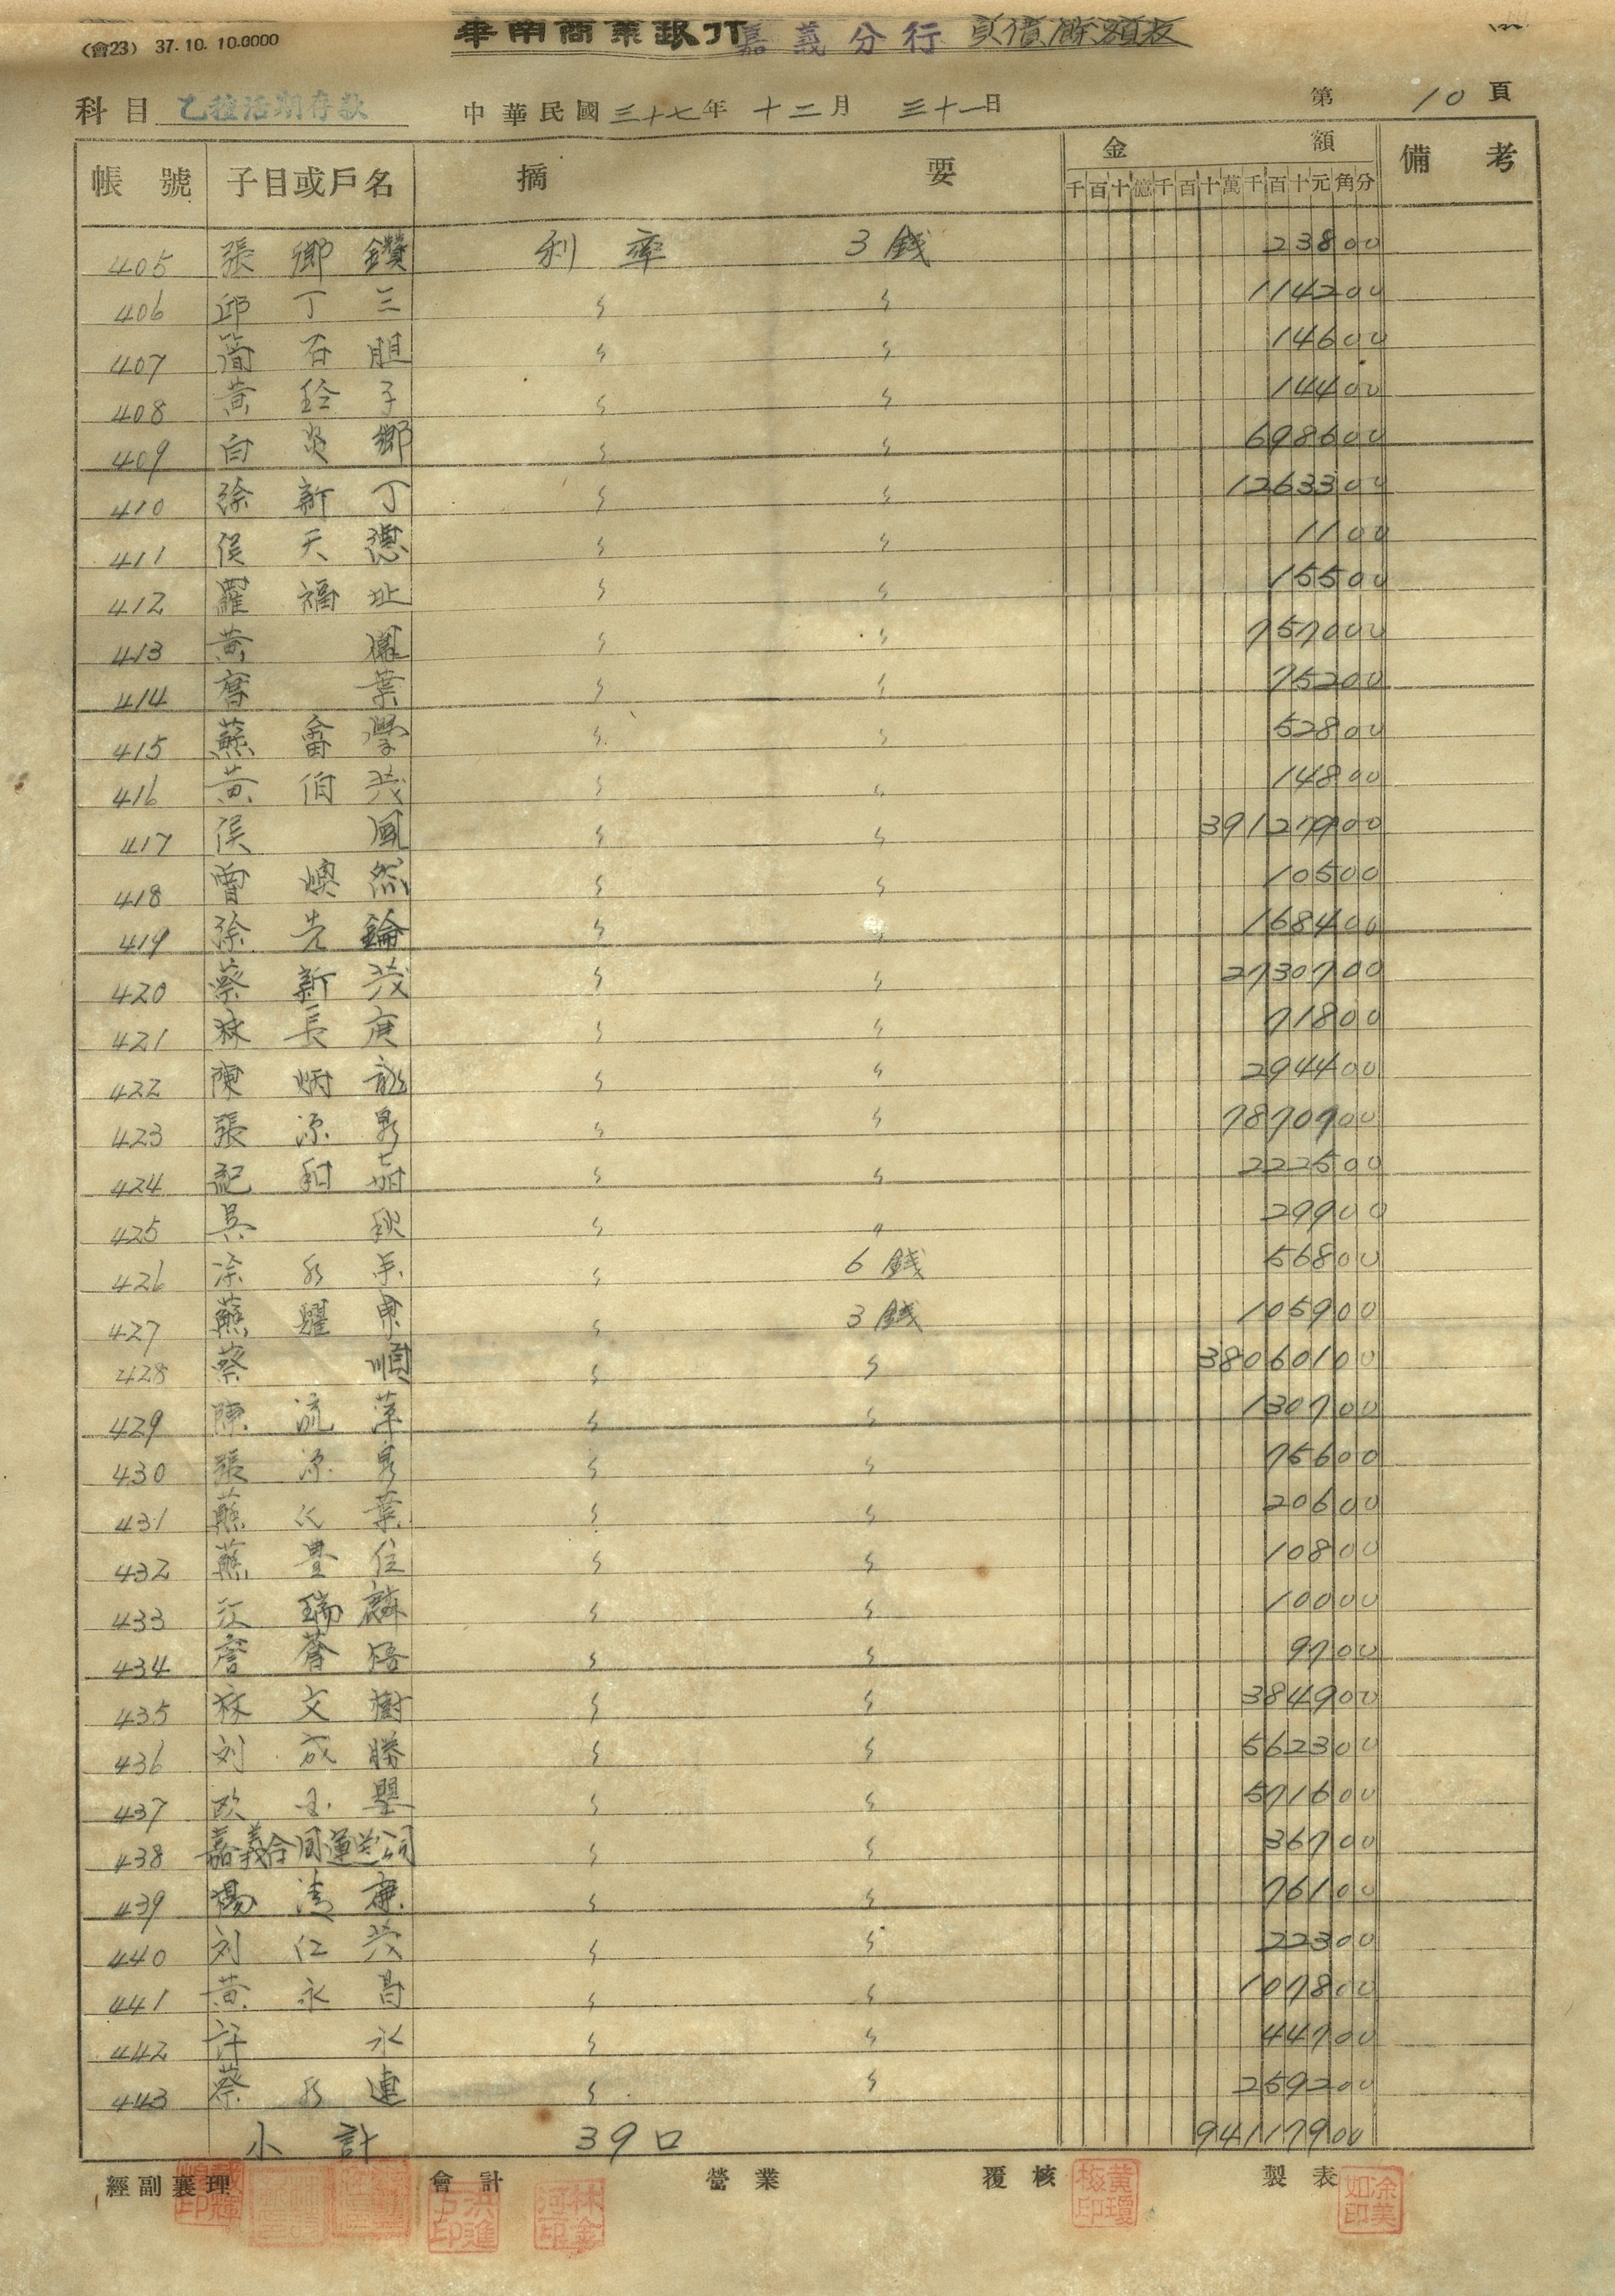 (會23) 37.10.10.0000
華南商業銀行 嘉義分行 負債餘額表
科目 乙種活期存款 中華民國三十七年 十二月 三十一日 第 10 頁
帳號 子目或戶名 摘要 金額 備考
千百十億千百十萬千百十元角分
405 張鄉鑽 利率 3錢 23800
406 邱丁三 〃 〃 114200
407 簡石胆 〃 〃 14600
408 黃玲子 〃 〃 14400
409 白炎鄉 〃 〃 698600
410 徐新丁 〃 〃 1263300
411 侯天德 〃 〃 1100
412 羅福址 〃 〃 15500
413 黃 〃 〃 757000
414 葉 〃 〃 75200
415 蘇 〃 〃 52800
416 黃伯茂 〃 〃 14800
417 侯風 〃 〃 39127900
418 曾煥然 〃 〃 10500
419 徐先錀 〃 〃 168400
420 蔡新茂 〃 〃 2730700
421 林長庚 〃 〃 71800
422 陳炳龍 〃 〃 294400
423 張源泉 〃 〃 7870700
424 記和 〃 〃 222500
425 吳秋 〃 〃 29900
426 涂水 〃 6錢 56800
427 蘇耀東 〃 3錢 105900
428 蔡順 〃 〃 38060100
429 陳流萍 〃 〃 130700
430 張源泉 〃 〃 75600
431 蘇葉 〃 〃 20600
432 蘇豊住 〃 〃 10800
433 江瑞麟 〃 〃 10000
434 詹 〃 〃 9700
435 林文樹 〃 〃 384900
436 刘成勝 〃 〃 562300
437 欧 〃 〃 571600
438 嘉義合同運送公司 〃 〃 36700
439 楊清康 〃 〃 76100
440 刘仁茂 〃 〃 22300
441 黃永昌 〃 〃 107800
442 許永 〃 〃 44700
443 蔡水連 〃 〃 259200
小計 39口 94117900
經副襄理 會計 營業 覆核 製表
洪進 印
林金河印
黃瓊極印
涂美如印